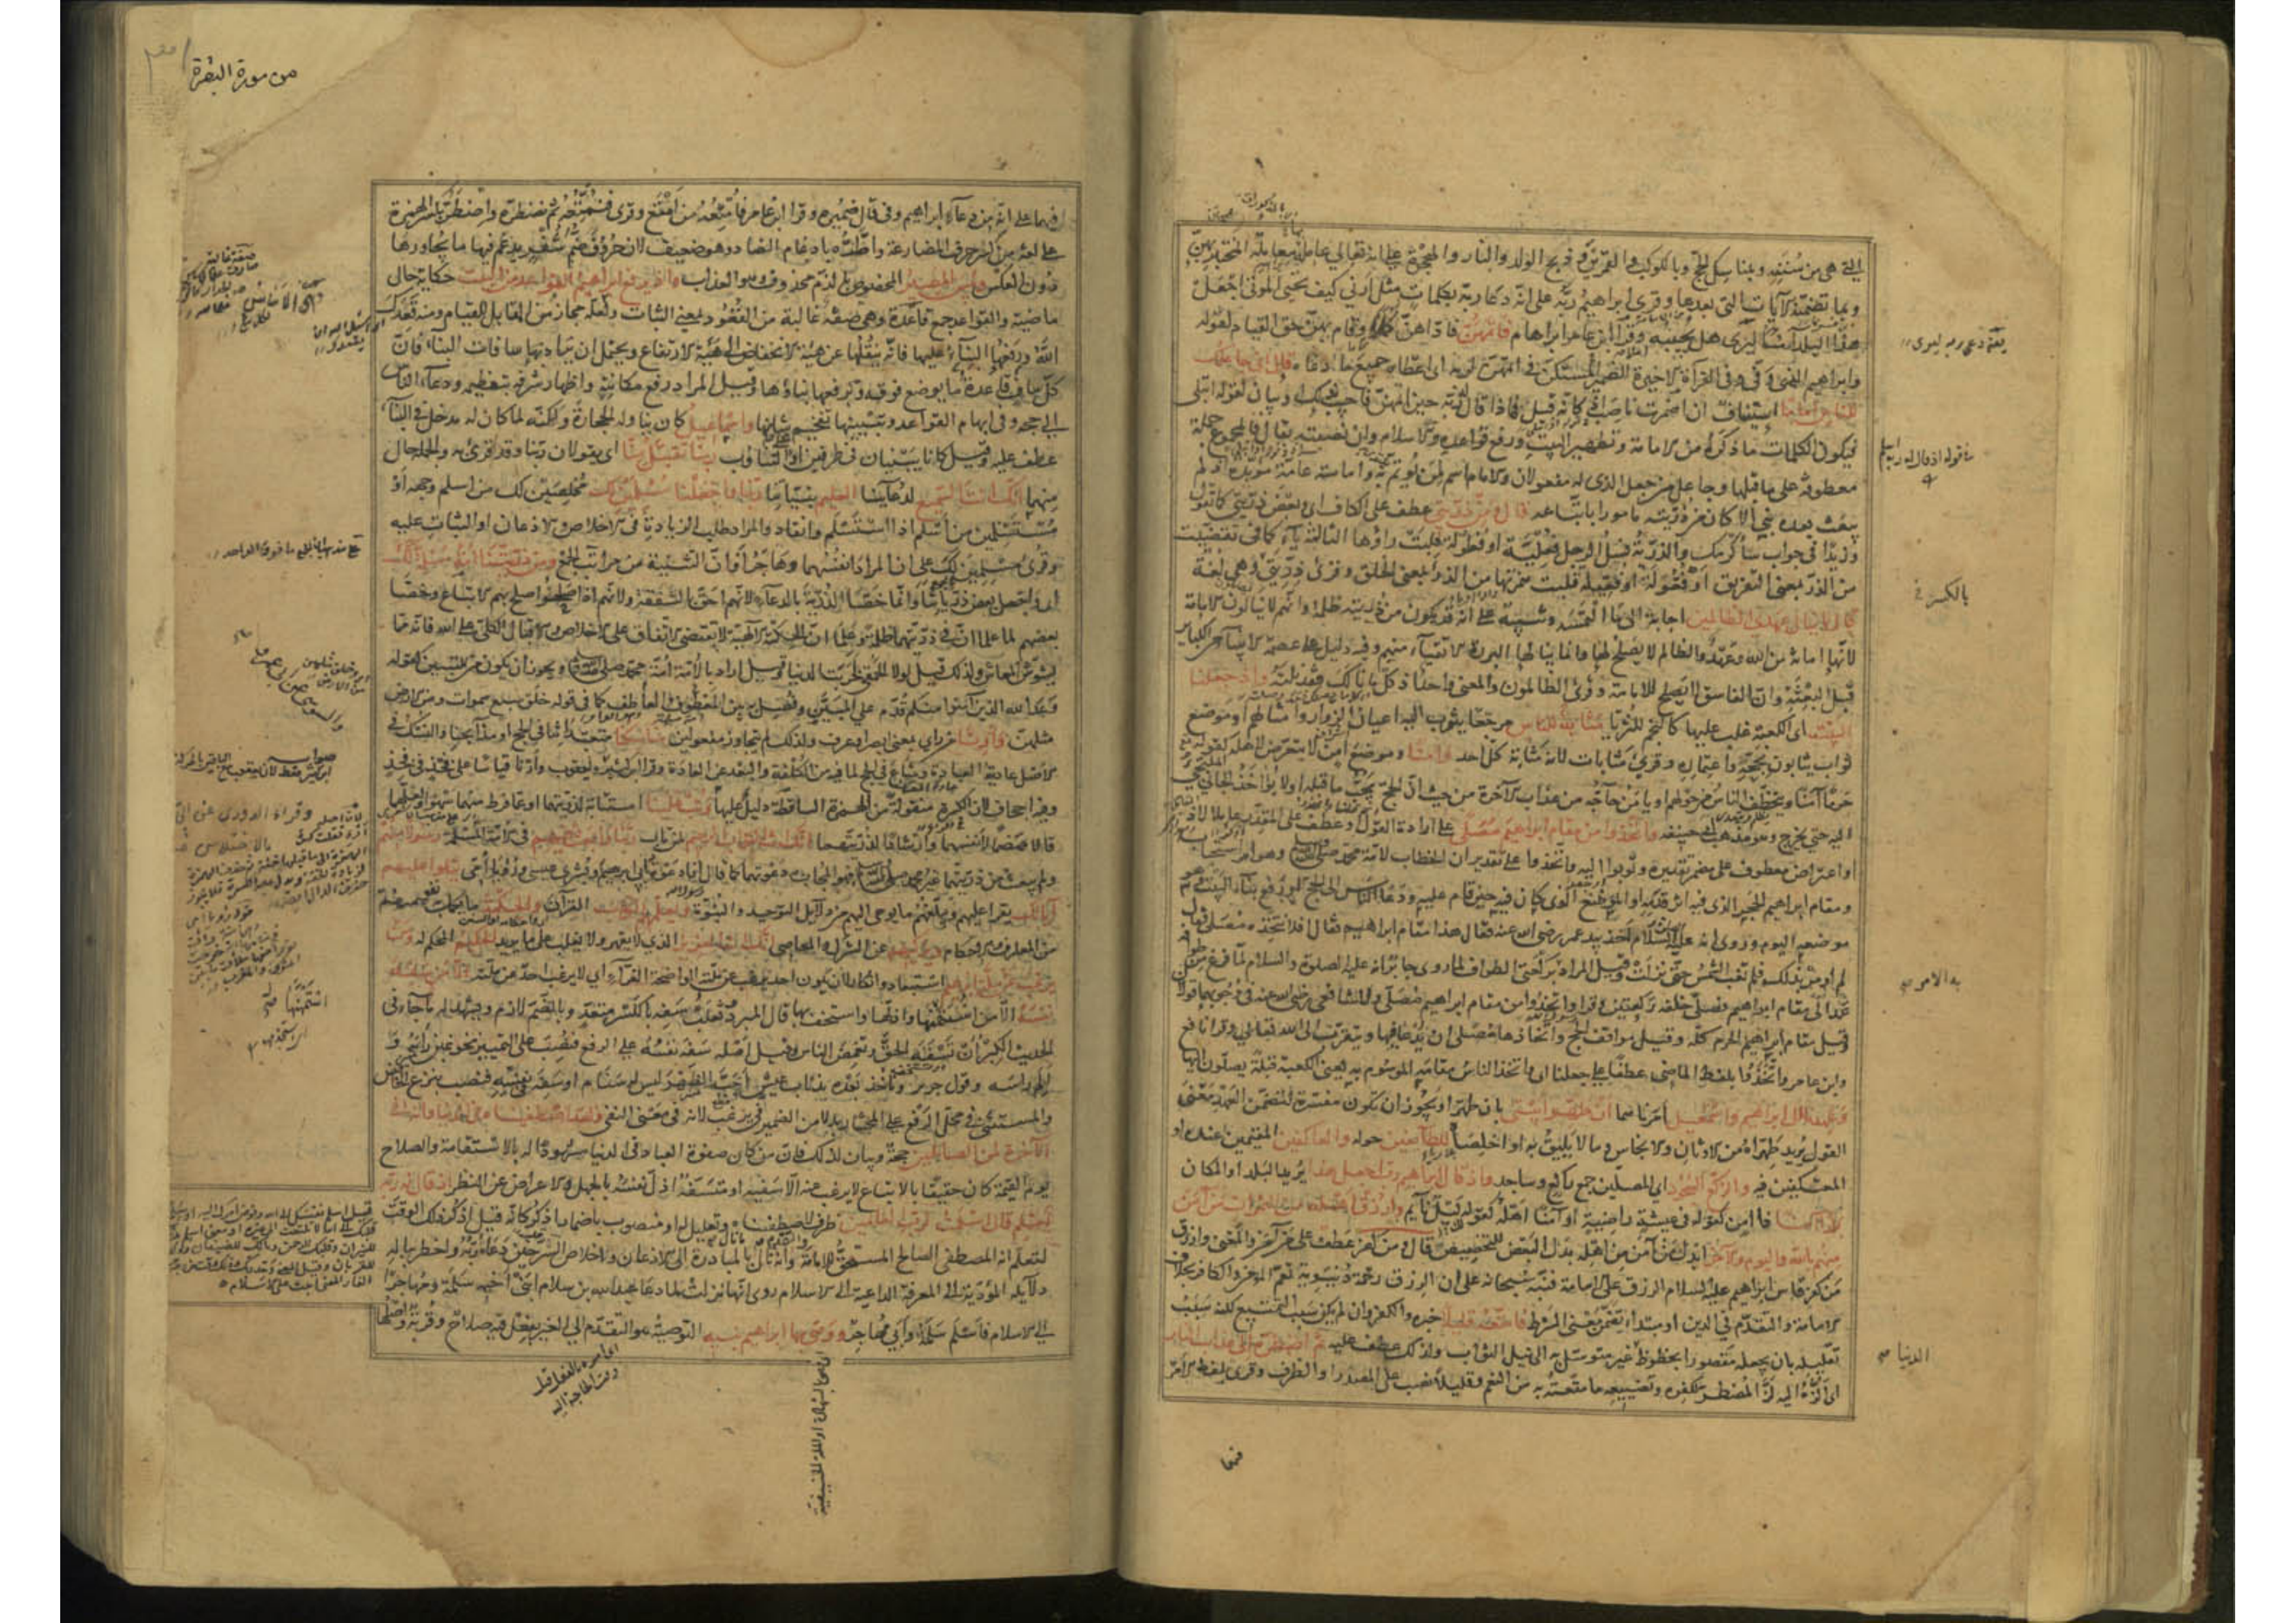 التى هى من سننه وبمناسك الحج وبالكوكب والقمرين وذبح الولد والنار والهجرة على انه تعالى عامله معاملة المختبر بهن
وبما تضمنته الآيات التى بعدها وقرئ ابراهيم ربه على انه دعا ربه بكلمات مثل ارنى كيف تحيى الموتى اجعل
هذا البلد آمنا ليرى هل يجيبه وقرأ ابن عامر ابراهام فاتمهن فاداهن كملا وقام بهن حق القيام لقوله
وابراهيم الذى وفى وفى القراءة الاخيرة الضمير المستكن فى اتمهن لربه اى اعطاه جميع ما دعاه قال انى جاعلك
للناس اماما استيناف ان اضمرت ناصب اذ كانه قيل فماذا قال له ربه حين اتمهن فاجيب بذلك او بيان لقوله ابتلى
فيكون الكلمات ما ذكره من الامامة وتطهير البيت ورفع قواعده والاسلام وان نصبته بقال فالمجموع جملة
معطوفة على ما قبلها وجاعل من جعل الذى له مفعولان والامام اسم لمن يؤتم به وامامته عامة مؤبدة اذ لم
يبعث بعده نبى الا كان من ذريته مامورا باتباعه قال ومن ذريتى عطف على الكاف اى وبعض ذريتى كما تقول
وزيدا فى جواب ساكرمك والذرية نسل الرجل فعلية او فعولة قلبت راؤها الثالثة ياء كما فى تقضيت
من الذر بمعنى التفريق او فعولة او فعيلة قلبت همزتها من الذرء بمعنى الخلق وقرئ ذريتى وهى لغة
قال لا ينال عهدى الظالمين اجابة الى ما التمسه وتنبيه على انه قد يكون من ذريته ظلمة وانهم لا ينالون الامامة
لانها امانة من الله وعهد والظالم لا يصلح لها وانما ينالها البررة الاتقياء منهم وفيه دليل على عصمة الانبياء من الكبائر
قبل البعثة وان الفاسق لا يصلح للامامة وقرئ الظالمون والمعنى واحد اذ كل ما نالك فقد نلته واذ جعلنا
البيت اى الكعبة غلب عليها كالنجم للثريا مثابة للناس مرجعا يثوب اليه اعيان الزوار او امثالهم او موضع
ثواب يثابون بحجه واعتماره وقرئ مثابات لانه مثابة كل احد وامنا وموضع امن لا يتعرض لاهله كقوله
حرما آمنا ويتخطف الناس من حولهم او يامن حاجه من عذاب الآخرة من حيث ان الحج يجب ما قبله او لا يؤاخذ الجانى الملتجئ
اليه حتى يخرج وهو مذهب ابى حنيفة واتخذوا من مقام ابراهيم مصلى على ارادة القول او عطف على المقدر عاملا لاذ
او اعتراض معطوف على مضمر تقديره وثوبوا اليه واتخذوا على تقدير ان الخطاب لامة محمد صلى الله عليه وسلم وهو امر استحباب
ومقام ابراهيم الحجر الذى فيه اثر قدميه او الموضع الذى كان فيه حين قام عليه ودعا الناس الى الحج او رفع بناء البيت وهو
موضعه اليوم وروى انه عليه السلام اخذ بيد عمر رضى الله عنه فقال هذا مقام ابراهيم فقال افلا نتخذه مصلى فقال
لم اومر بذلك فلم تغب الشمس حتى نزلت وقيل المراد به ركعتى الطواف لما روى جابر انه عليه الصلوة والسلام لما فرغ من طوافه
عمد الى مقام ابراهيم فصلى خلفه ركعتين وقرأ واتخذوا من مقام ابراهيم مصلى وللشافعى رضى الله عنه فى وجوبهما قولان
وقيل مقام ابراهيم الحرم كله وقيل مواقف الحج واتخاذها مصلى ان يدعا فيها ويتقرب الى الله تعالى وقرا نافع
وابن عامر واتخذوا بلفظ الماضى عطفا على جعلنا اى واتخذ الناس مقامه الموسوم به يعنى الكعبة قبلة يصلون اليها
وعهدنا الى ابراهيم واسمعيل امرناهما ان طهرا بيتى بان طهرا ويجوز ان تكون مفسرة لتضمن العهد معنى
القول يريد طهراه من الاوثان والانجاس وما لا يليق به او اخلصاه للطائفين حوله والعاكفين المقيمين عنده او
المعتكفين فيه والركع السجود اى المصلين جمع راكع وساجد واذ قال ابراهيم رب اجعل هذا يريد البلد او المكان
بلدا آمنا ذا امن كقوله فى عيشة راضية او آمنا اهله كقوله ليل نائم وارزق اهله من الثمرات من آمن
منهم بالله واليوم الآخر ابدل من آمن من اهله بدل البعض للتخصيص قال ومن كفر عطف على من آمن والمعنى وارزق
من كفر قاس ابراهيم عليه السلام الرزق على الامامة فنبه سبحانه على ان الرزق رحمة دنيوية تعم المؤمن والكافر بخلاف
الامامة والتقدم فى الدين او مبتدأ يضمن معنى الشرط فامتعه قليلا خبره والكفر وان لم يكن سبب التمتيع لكنه سبب
تقليله بان يجعله مقصورا بحظوظ الدنيا غير متوسل به الى نيل الثواب ولذلك عطف عليه ثم اضطره الى عذاب النار
اى الزه اليه لز المضطر لكفره وتضييعه ما متعته به من النعم وقليلا نصب على المصدر او الظرف وقرئ بلفظ الامر
فيهما
بالكسر
به الامر
الدنيا
من سورة البقرة
فيهما على انه من دعاء ابراهيم وفى قال ضميره وقرا ابن عامر فامتعه من امتع وقرئ فنمتعه ثم نضطره واضطره بكسر الهمزة
على لغة من كسر حروف المضارعة واطره بادغام الضاد وهو ضعيف لان حروف ضم شفر يدغم فيها ما يجاورها
دون العكس وبئس المصير المخصوص بالذم محذوف وهو العذاب واذ يرفع ابراهيم القواعد من البيت حكاية حال
ماضية والقواعد جمع قاعدة وهى صفة غالبة من القعود بمعنى الثبات ولعله مجاز من المقابل للقيام ومنه قعدك
الله ورفعها البناء عليها فانه ينقلها عن هيئة الانخفاض الى هيئة الارتفاع ويحتمل ان يراد بها سافات البناء فان
كل ساف قاعدة ما يوضع فوقه وبرفعها بناؤها وقيل المراد رفع مكانته واظهار شرفه بتعظيمه ودعاء الناس
الى حجه وفى ابهام القواعد وتبيينها تفخيم شانها واسماعيل كان يناوله الحجارة ولكنه لما كان له مدخل فى البناء
عطف عليه وقيل كانا يبنيان فى طرفين او على التناوب ربنا تقبل منا اى يقولان ربنا وقد قرئ به والجملة حال
منهما انك انت السميع لدعائنا العليم بنياتنا ربنا واجعلنا مسلمين لك مخلصين لك من اسلم وجهه او
مستسلمين من اسلم اذا استسلم وانقاد والمراد طلب الزيادة فى الاخلاص والاذعان او الثبات عليه
وقرئ مسلمين لك على ان المراد انفسهما وهاجر او ان التثنية من مراتب الجمع ومن ذريتنا امة مسلمة لك
اى واجعل بعض ذريتنا وانما خصا الذرية بالدعاء لانهم احق بالشفقة ولانهم اذا صلحوا صلح بهم الاتباع وخصا
بعضهم لما علما ان فى ذريتهما ظلمة وعلما ان الحكمة الالهية لا تقتضى الاتفاق على الاخلاص والاقبال الكلى على الله فانه مما
يشوش المعاش ولذلك قيل لولا الحمقى لخربت الدنيا وقيل اراد بالامة امة محمد صلى الله عليه وسلم ويجوز ان يكون من للتبيين كقوله
وعد الله الذين آمنوا منكم قدم على المبين وفصل به بين العاطف والمعطوف كما فى قوله خلق سبع سموات ومن الارض
مثلهن وارنا من راى بمعنى ابصر او عرف ولذلك لم يتجاوز مفعولين مناسكنا متعبداتنا فى الحج او مذابحنا والنسك فى
الاصل غاية العبادة وشاع فى الحج لما فيه من الكلفة والبعد عن العادة وقرا ابن كثير ويعقوب وارنا قياسا على فخذ فى فخذ
وفيه اجحاف لان الكسرة منقولة من الهمزة الساقطة دليل عليها وتب علينا استتابة لذريتهما او عما فرط منهما سهوا ولعلهما
قالا هضما لانفسهما وارشادا لذريتهما انك انت التواب الرحيم لمن تاب ربنا وابعث فيهم فى الامة المسلمة رسولا منهم
ولم يبعث من ذريتهما غير محمد صلى الله عليه وسلم فهو المجاب به دعوتهما كما قال انا دعوة ابى ابراهيم وبشرى عيسى ورؤيا امى يتلوا عليهم
آياتك يقرا عليهم ويبلغهم ما يوحى اليهم من دلايل التوحيد والنبوة ويعلمهم الكتاب القرآن والحكمة ما يكمل به نفوسهم
من المعارف والاحكام ويزكيهم عن الشرك والمعاصى انك انت العزيز الذى لا يقهر ولا يغلب على ما يريد الحكيم المحكم له ومن
يرغب عن ملة ابرهيم استبعاد وانكار لان يكون احد يرغب عن ملته الواضحة الغراء اى لا يرغب احد عن ملته الا من سفه
نفسه الا من استمهنها واذلها واستخف بها قال المبرد وثعلب سفه بالكسر متعد وبالضم لازم ويشهد له ما جاء فى
الحديث الكبر ان تسفه الحق وتغمص الناس وقيل اصله سفه نفسه على الرفع فنصب على التمييز نحو غبن رايه
والم راسه وقول جرير وناخذ بعده بذناب عيش اجب الظهر ليس له سنام او سفه فى نفسه فنصب بنزع الخافض
والمستثنى فى محل الرفع على المختار بدلا من الضمير فى يرغب لانه فى معنى النفى ولقد اصطفيناه فى الدنيا وانه فى
الآخرة لمن الصالحين حجة وبيان لذلك فان من كان صفوة العباد فى الدنيا مشهودا له بالاستقامة والصلاح
يوم القيمة كان حقيقا بالاتباع لا يرغب عنه الا سفيه او متسفه اذل نفسه بالجهل والاعراض عن النظر اذ قال له ربه
اسلم قال اسلمت لرب العالمين ظرف لاصطفيناه وتعليل له او منصوب باضمار اذكر كانه قيل اذكر ذلك الوقت
لتعلم انه المصطفى الصالح المستحق للامامة وانه نال ما نال بالمبادرة الى الاذعان واخلاص السر حين دعاه ربه واخطر بباله
دلايله المؤدية الى المعرفة الداعية الى الاسلام روى انها نزلت لما دعا عبد الله بن سلام ابنى اخيه سلمة ومهاجرا
الى الاسلام فاسلم سلمة وابى مهاجر ووصى بها ابراهيم بنيه التوصية هو التقدم الى الغير بفعل فيه صلاح وقربة واصلها